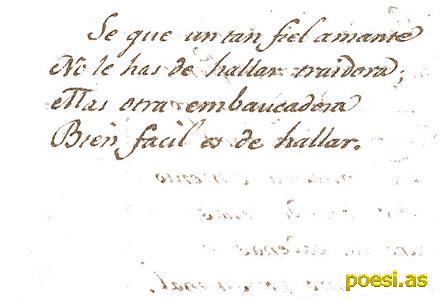 Se que un tan fiel amante
No le has de hallar traidora;
Mas otra embaucadora
Bien facil es de hallar.
poesi.as